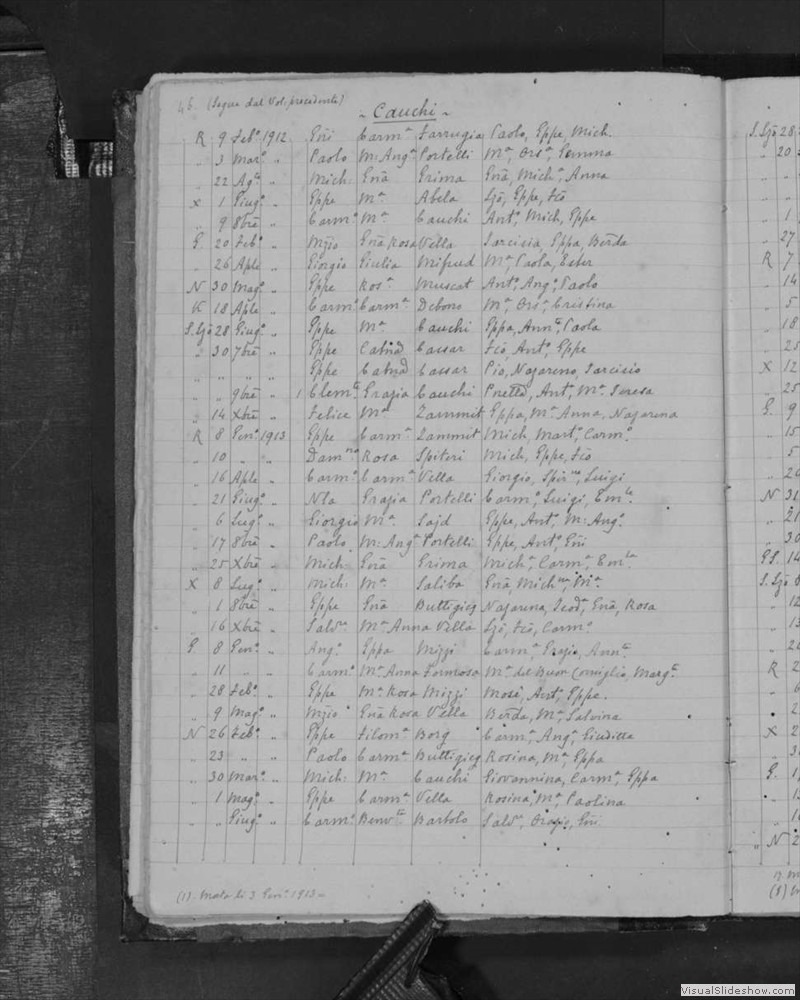 46. (Segue dal Vol. precedente)
- Cauchi -
R 9 Feb.º 1912. Gñi Carm.ª Farrugia Paolo, Gppe, Mich.
" 3 Mar.º " Paolo M: Ang.ª Portelli M.ª, Ors.ª, Gemma
" 22 Ag.to " Mich: Gnã Grima Gnã, Mich.ª, Anna
X 1 Giug.º " Gppe M.ª Abela Ljõ, Gppe, Fcõ
" 9 8bre " Carm.º M.ª Cauchi Ant.º, Mich, Gppe
G. 20 Feb.º " Mzio Gnã Rosa Vella Tarcisia, Gppa, Berda
" 26 Aple " Giorgio Giulia Mifsud M.ª Paola, Ester
N 30 Mag.º " Gppe Ros.ª Muscat Ant.º, Ang.º, Paolo
K 18 Aple " Carm.º Carm.ª Debono M.ª Ors.ª, Cristina
S.Ljõ 28 Giug.º " Gppe M.ª Cauchi Gppa, Ann.ta, Paola
" 30 7bre " Gppe Catna Cassar Fcõ, Ant.º, Gppe
" " " " Gppe Catna Cassar Pio, Nazareno, Tarcisio
" " 9bre " 1 Clem.te Grazia Cauchi Ant, M.ª Teresa
" 14 Xbre " Felice M.ª Zammit Gppa, M.ª Anna, Nazarena
R 8 Gen.º 1913 Gppe Carm.ª Zammit Mich, Mart.º, Carm.º
" 10 " " Dam.no Rosa Spiteri Mich, Gppe, Fcõ
" 16 Aple " Carm.º Carm.ª Vella Giorgio, Spir.ne, Luigi
" 21 Giug.º " Nla Grazia Portelli Carm.º, Luigi, Em.le
" 6 Lug.º " Giorgio M.ª Said Gppe, Ant.º, M: Ang.º
" 17 8bre " Paolo M: Ang.ª Portelli Gppe, Ant.º, Gñi
" 25 Xbre " Mich: Gnã Grima Mich.ª, Carm.ª, Em.la
X 8 Lug.º " Mich: M.ª Saliba Gnã, Mich.na, M.ª
" 1 8bre " Gppe Gnã Buttigieg Nazarena, Teod.ª, Gnã, Rosa
" 16 Xbre " Salv.re M.ª Anna Vella Ljõ, Fcõ, Carm.º
G 8 Gen.º " Ang.º Gppa Mizzi Carm.ª, Grazia, Ann.ta
" 11 " " Carm.º M.ª Anna Formosa M.ª del Buon Consiglio, Marg.ta
" 28 Feb.º " Gppe M.ª Rosa Mizzi Mosè, Ant.º, Gppe.
" 9 Mag.º " Mzio Gnã Rosa Vella Berda, M.ª Salvina
N 26 Feb.º " Gppe Filom.ª Borg Carm.ª, Ang.ª, Giuditta
" 23 " " Paolo Carm.ª Buttigieg Rosina, M.ª, Gppa
" 30 Mar.º " Mich: M.ª Cauchi Giovannina, Carm.ª, Gppa
" 1 Mag.º " Gppe Carm.ª Vella Rosina, M.ª, Paolina
" " Giug.º " Carm.º Benv.ta Bartolo Salv.re, Orazio, Gñi
(1) Morto li 3 Gen.º 1913 -
S. Ljõ 28
" 20
" 1
" 27
R 7
" 14
" 5
" 18
" 25
X 12
" 25
G. 9
" 15
" 5
" 26
N 31
" 21
" 30
GS. 14
S. Ljõ 8
" 12
" 13
" 20
R 2
" 6
" 2
X 2
" 3
G. 1
" 1
" 1
" N 2
VisualSlideshow.com